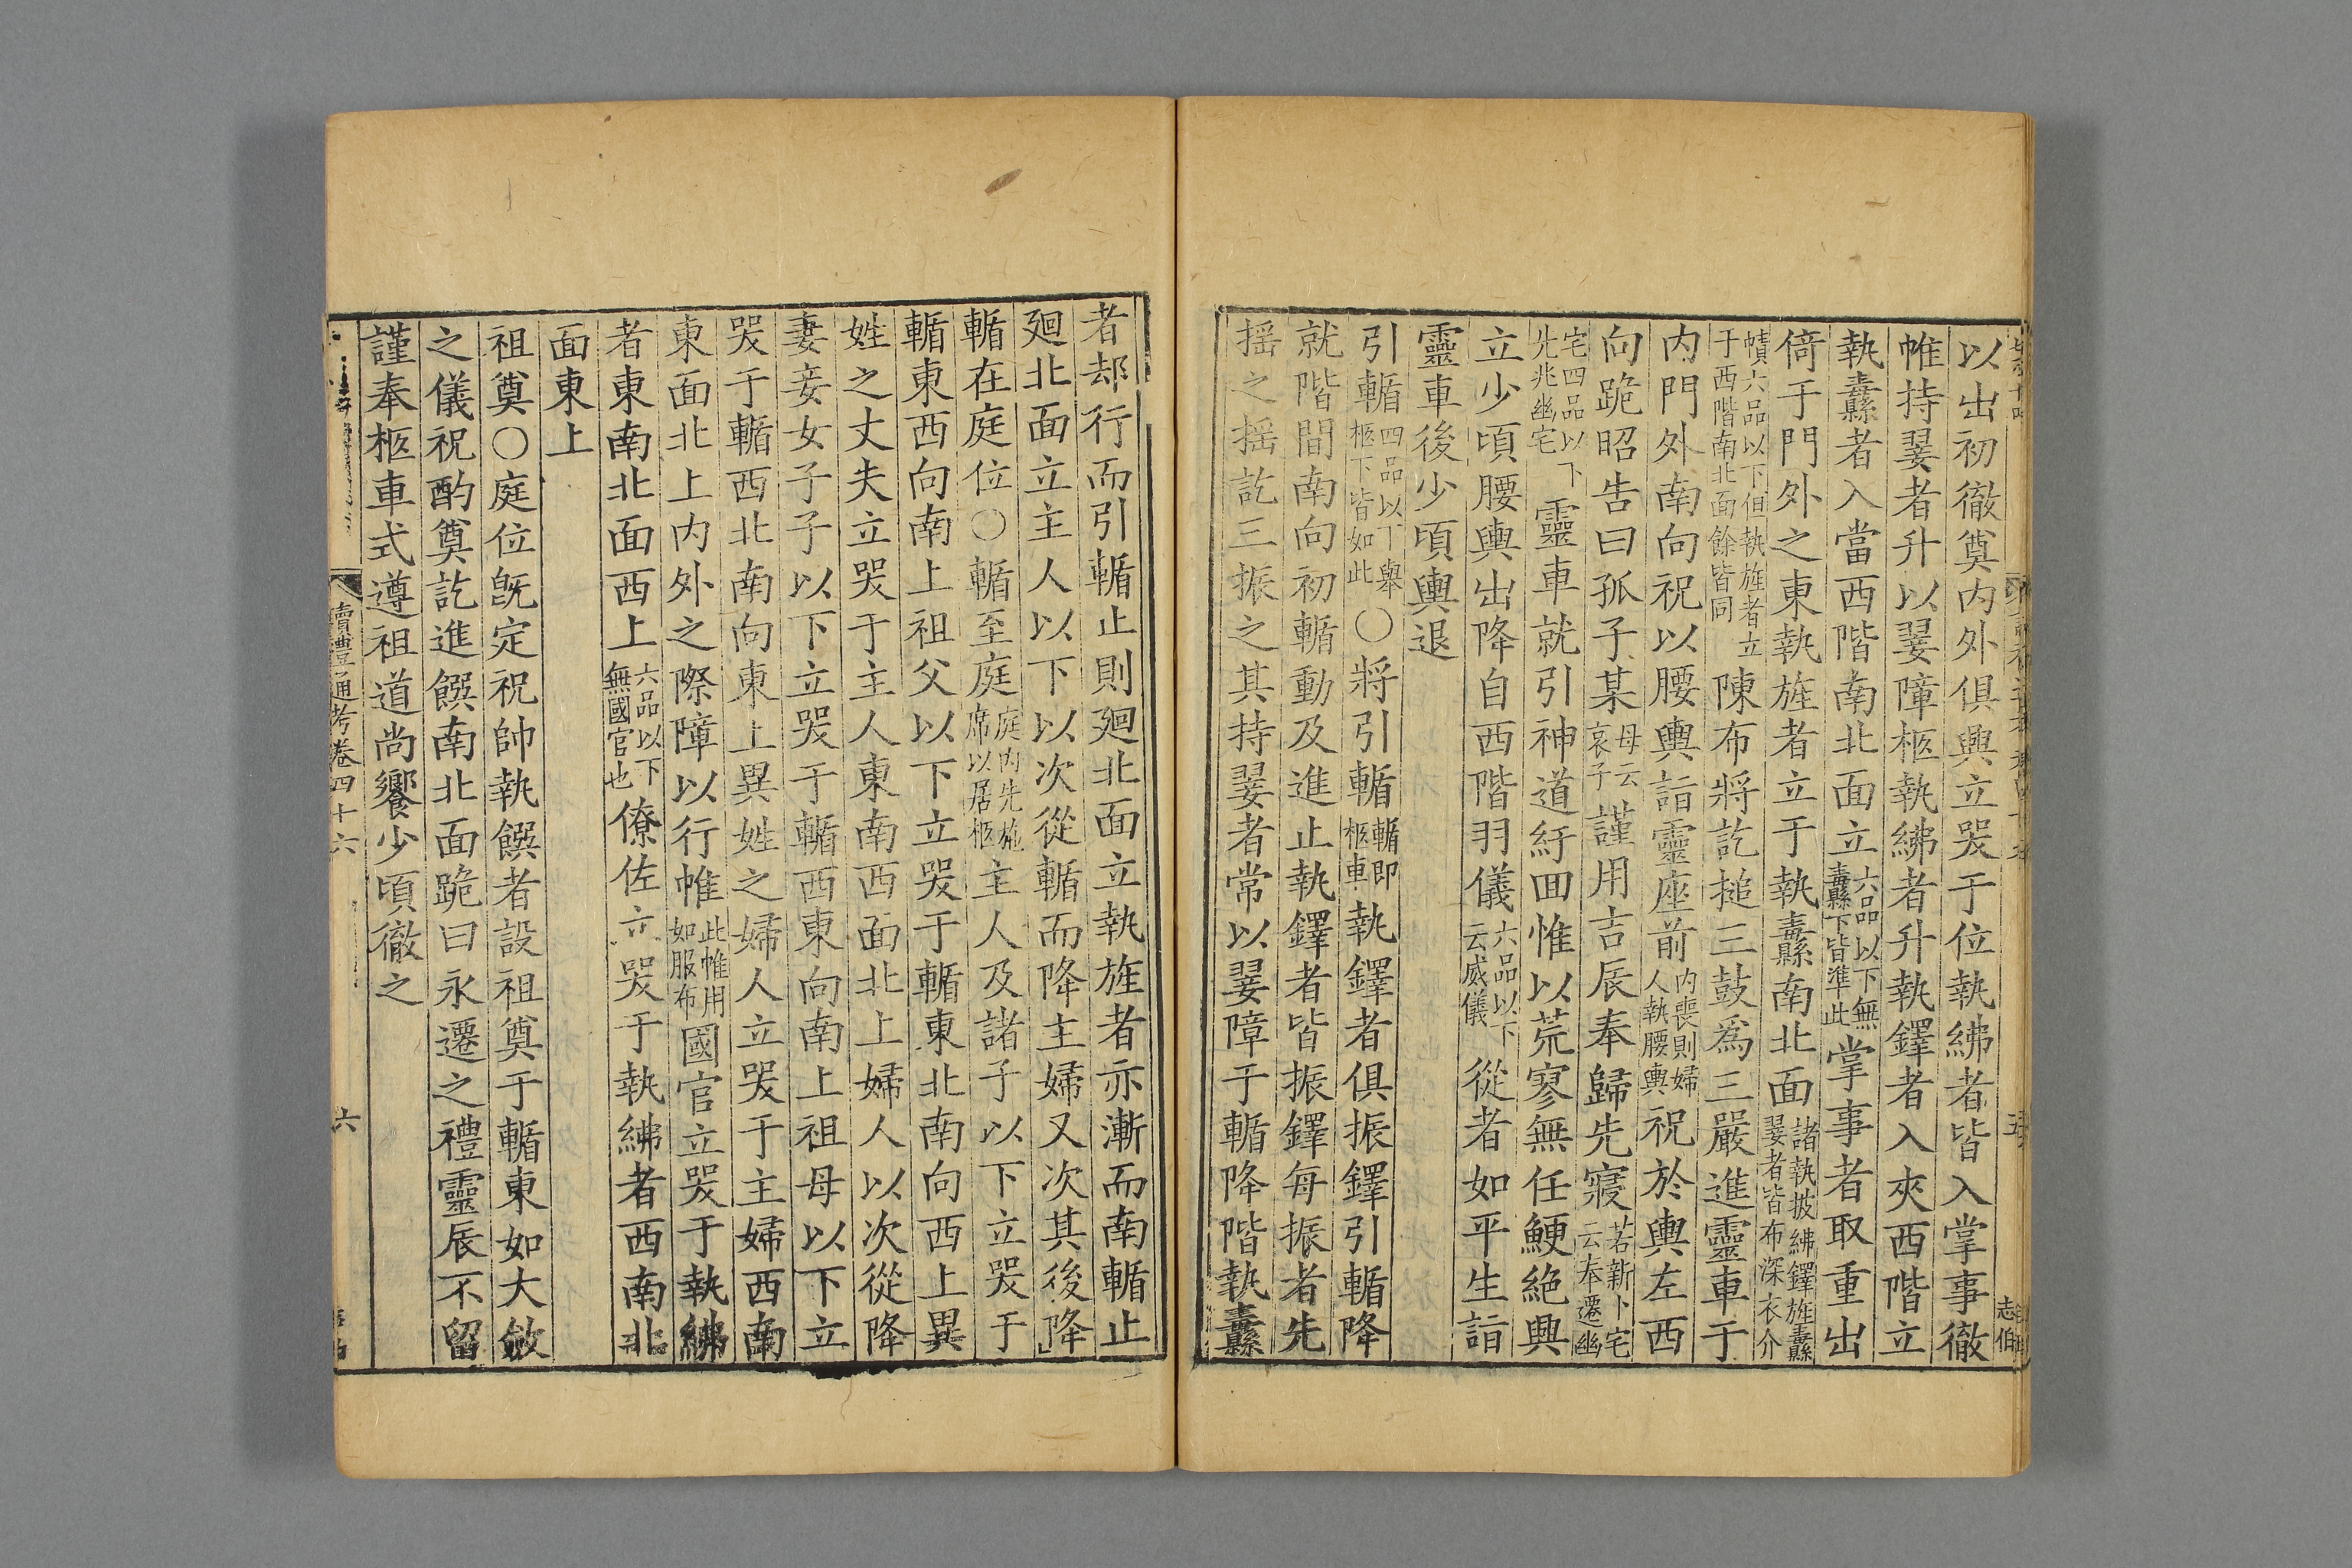 以出初徹奠內外俱興立哭于位執紼者皆入掌事徹
帷持翣者升以翣障柩執紼者升執鐸者入夾西階立
執纛者入當西階南北面立六品以下無纛下皆準此掌事者取重出
倚于門外之東執旌者立于執纛南北面諸執披紼鐸旌纛翣者皆布深衣介
幘六品以下但執旌者立于西階南北面餘皆同陳布將訖搥三鼓爲三嚴進靈車于
內門外南向祝以腰輿詣靈座前內喪則婦人執腰輿祝於輿左西
向跪昭告曰孤子某母云哀子謹用吉辰奉歸先寢若新卜宅云奉遷幽
宅四品以下先兆幽宅靈車就引神道紆回惟以荒寥無任鯁絶興
立少頃腰輿出降自西階羽儀六品以下云威儀從者如平生詣
靈車後少頃輿退
引輴四品以下舉柩下皆如此○將引輴輴即柩車執鐸者俱振鐸引輴降
就階間南向初輴動及進止執鐸者皆振鐸每振者先
搖之搖訖三振之其持翣者常以翣障于輴降階執纛
志伯
者却行而引輴止則廻北面立執旌者亦漸而南輴止
廻北面立主人以下以次從輴而降主婦又次其後降
輴在庭位○輴至庭庭內先施席以居柩主人及諸子以下立哭于
輴東西向南上祖父以下立哭于輴東北南向西上異
姓之丈夫立哭于主人東南西面北上婦人以次從降
妻妾女子子以下立哭于輴西東向南上祖母以下立
哭于輴西北南向東上異姓之婦人立哭于主婦西南
東面北上內外之際障以行帷此帷用如服布國官立哭于執紼
者東南北面西上六品以下無國官也僚佐立哭于執紼者西南北
面東上
祖奠○庭位既定祝帥執饌者設祖奠于輴東如大斂
之儀祝酌奠訖進饌南北面跪曰永遷之禮靈辰不留
謹奉柩車式遵祖道尚饗少頃徹之
讀禮通考卷四十六
六